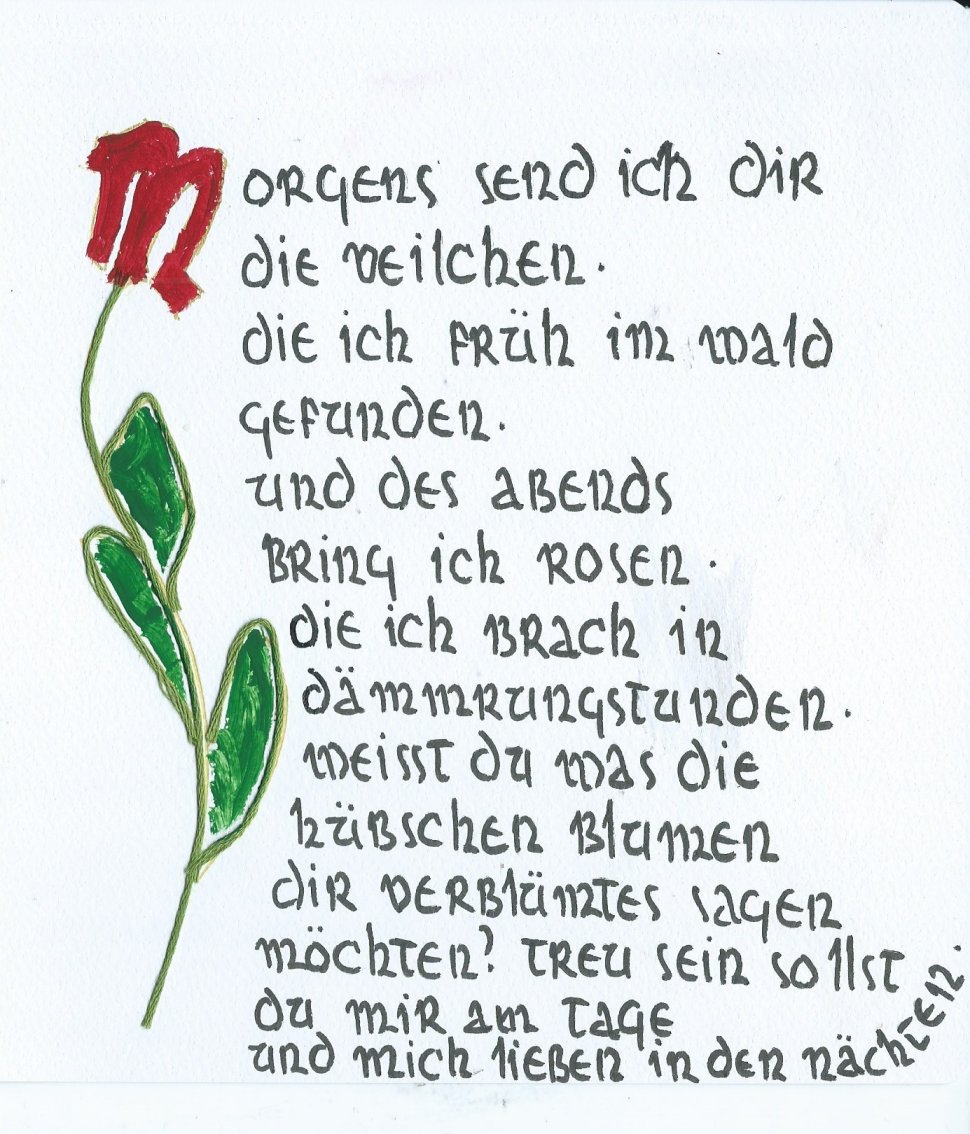 Morgens send ich dir
die veilchen.
die ich früh im wald
gefunden.
und des abends
bring ich rosen.
die ich brach in
dämmrungstunden.
weisst du was die
hübschen blumen
dir verblümtes sagen
möchten? treu sein sollst
du mir am tage
und mich lieben in den nächten.